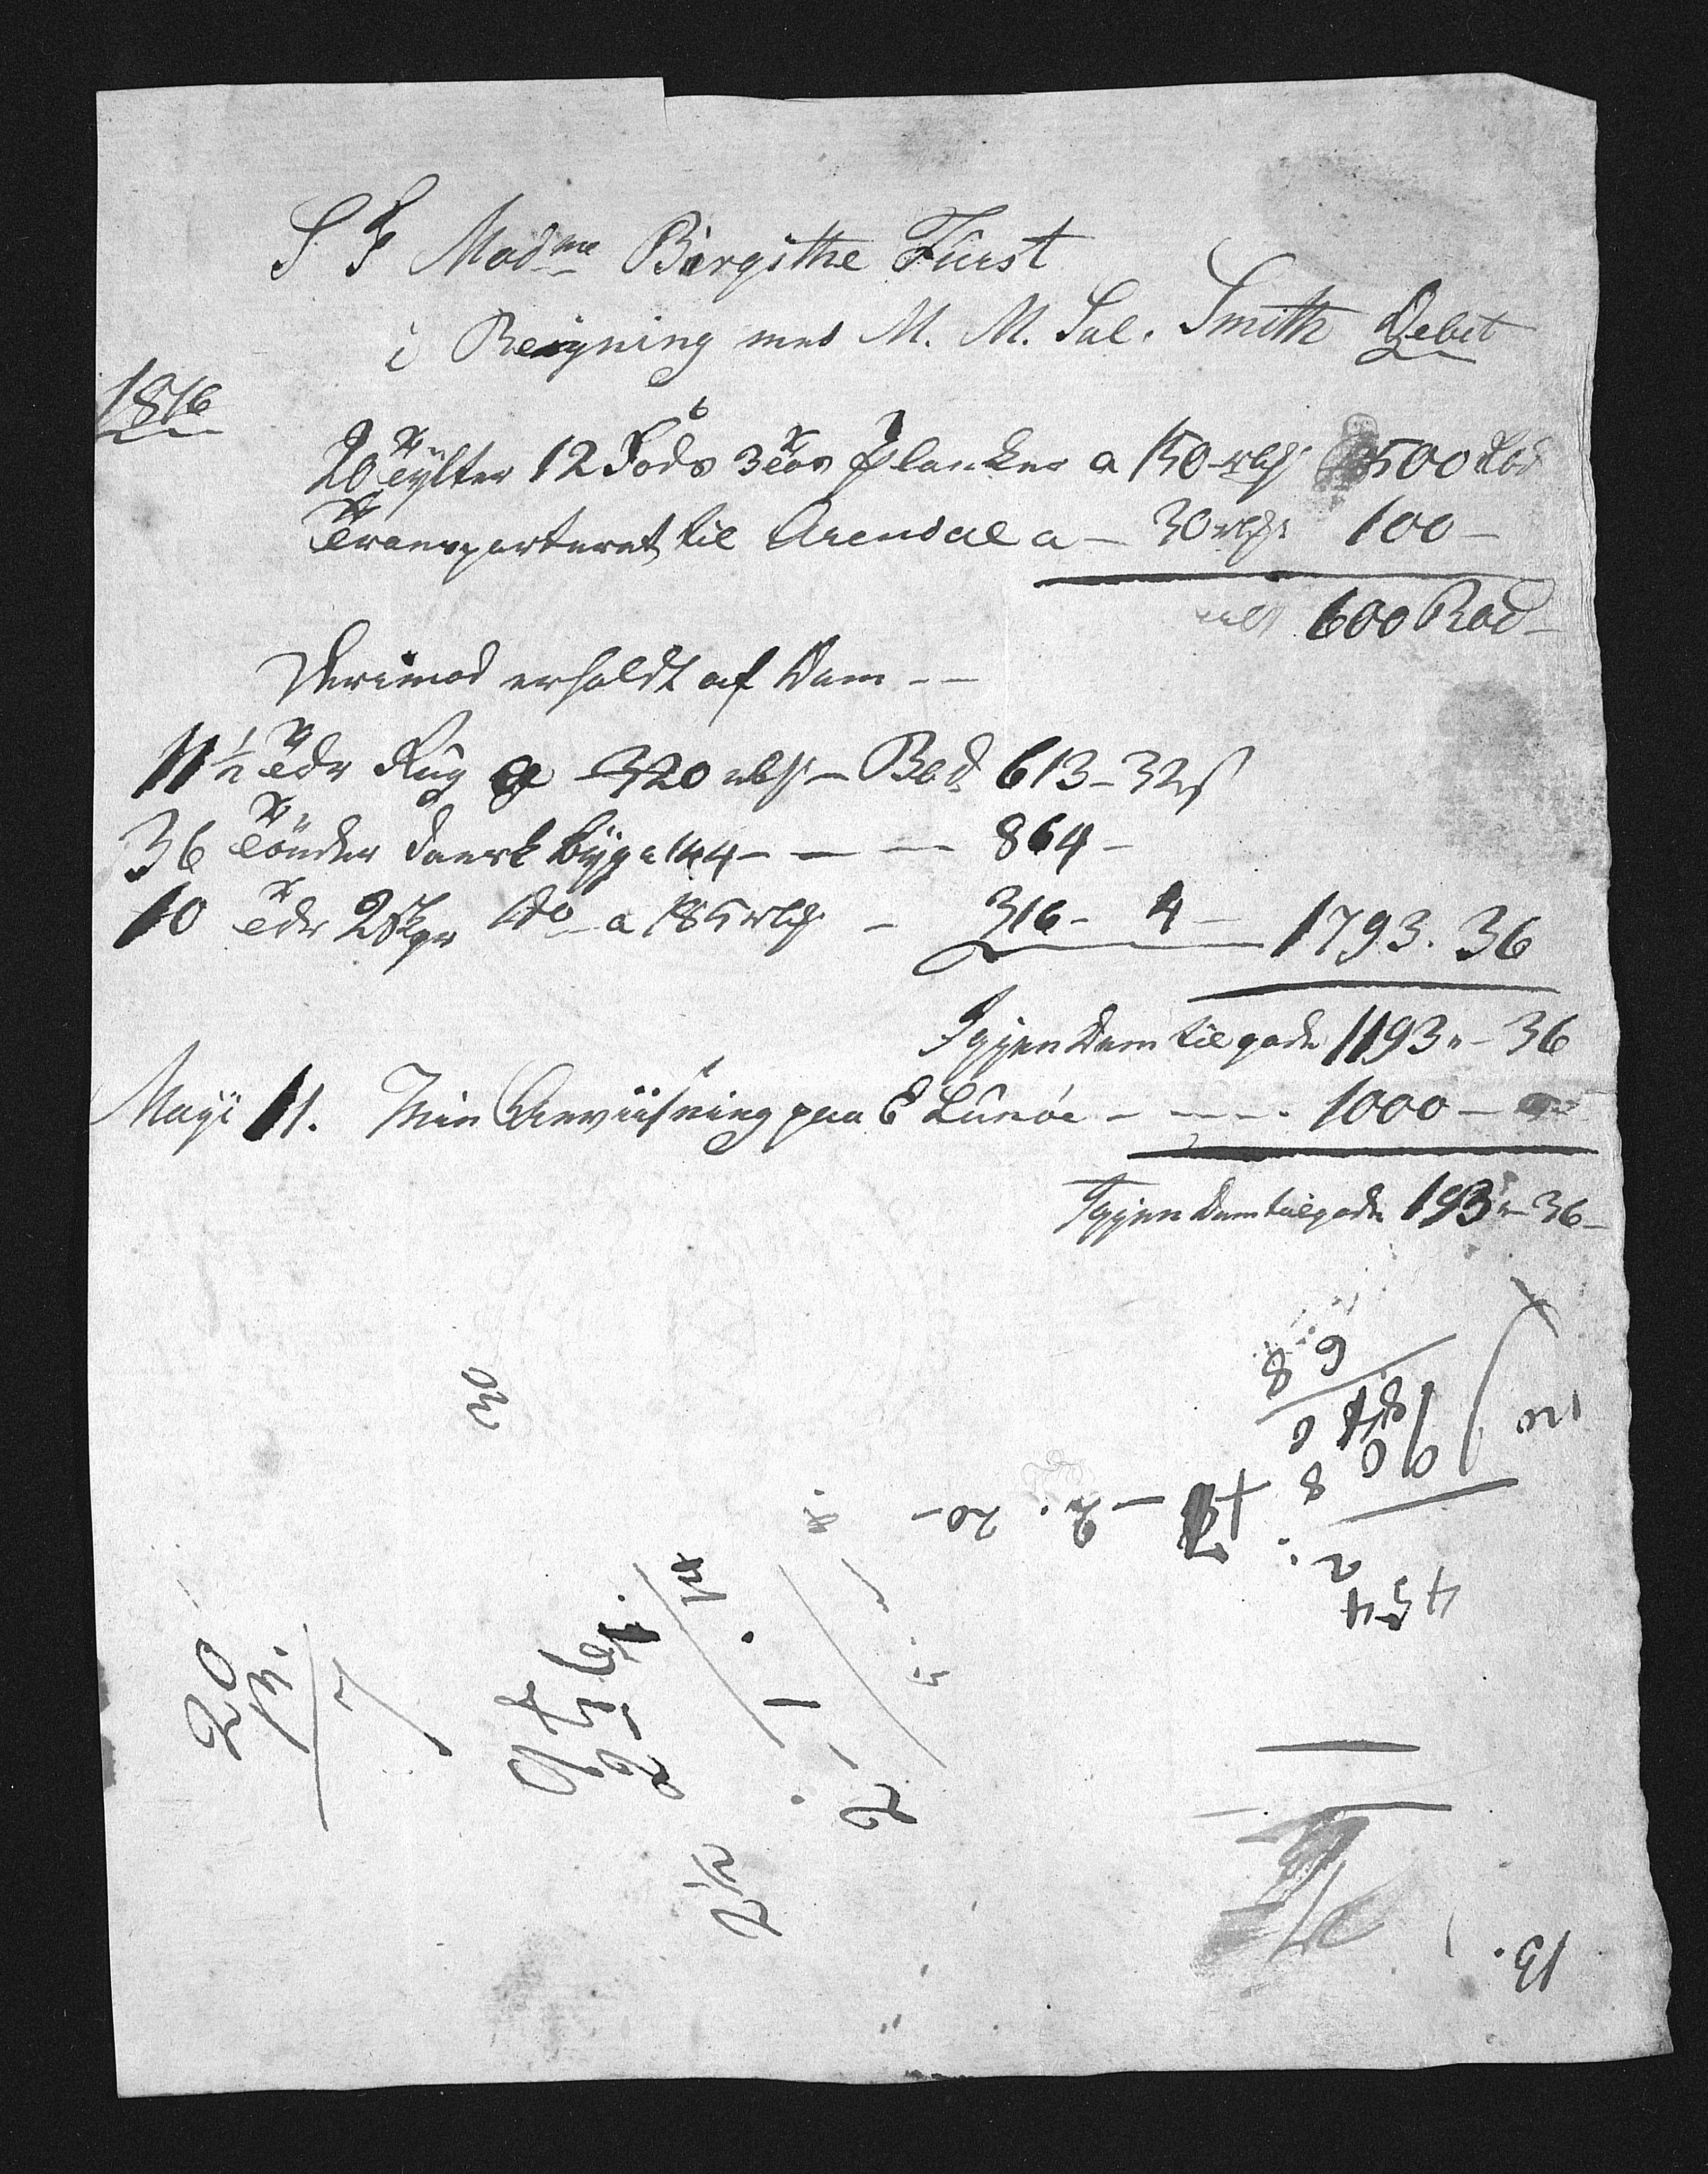 S F Madme Birgithe Fürst
i Reigning med M. M. Sal. Smith Debit
1816
20 Tylter 12 Fods 3 Tos Planker a 150 rbß 500 Rbd
Transporteret til Arendal a — 30 rbß 100 —
600 Rbd —
Derimod erholdt af Dem — —
11 1/2 Tdr Rug a 320 rbß — Rbd 613 — 32 ß
36 Tönder dansk byg a 144 — — — 864 —
10 Tdr 2 Skpr do a 185 rbß — 316 — 4 — 1793. 36
Igjen Dem tilgode 1193 " — 36
Mayi 11. Min Anviisning paa E Lunöe — — — 1000 —
Igjen Dem tilgode 193 " — 36 —
30
6 8
90 8
2
454
2. 20 —
14
20
13.
7
2 1/2
13.